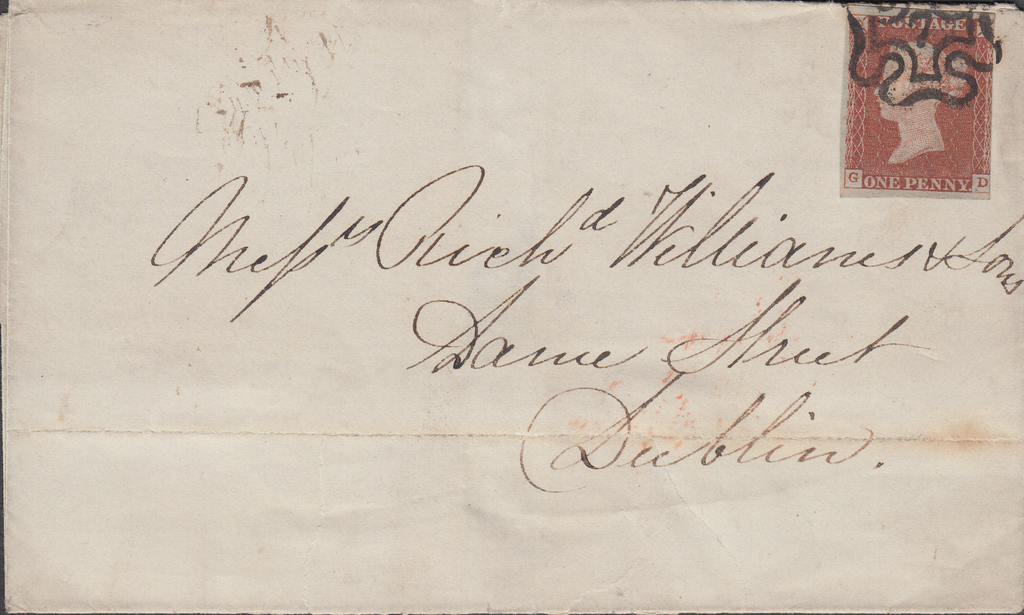 POSTAGE
G ONE PENNY. D
Messrs Richd Williams & Sons
Dame Street
Dublin.